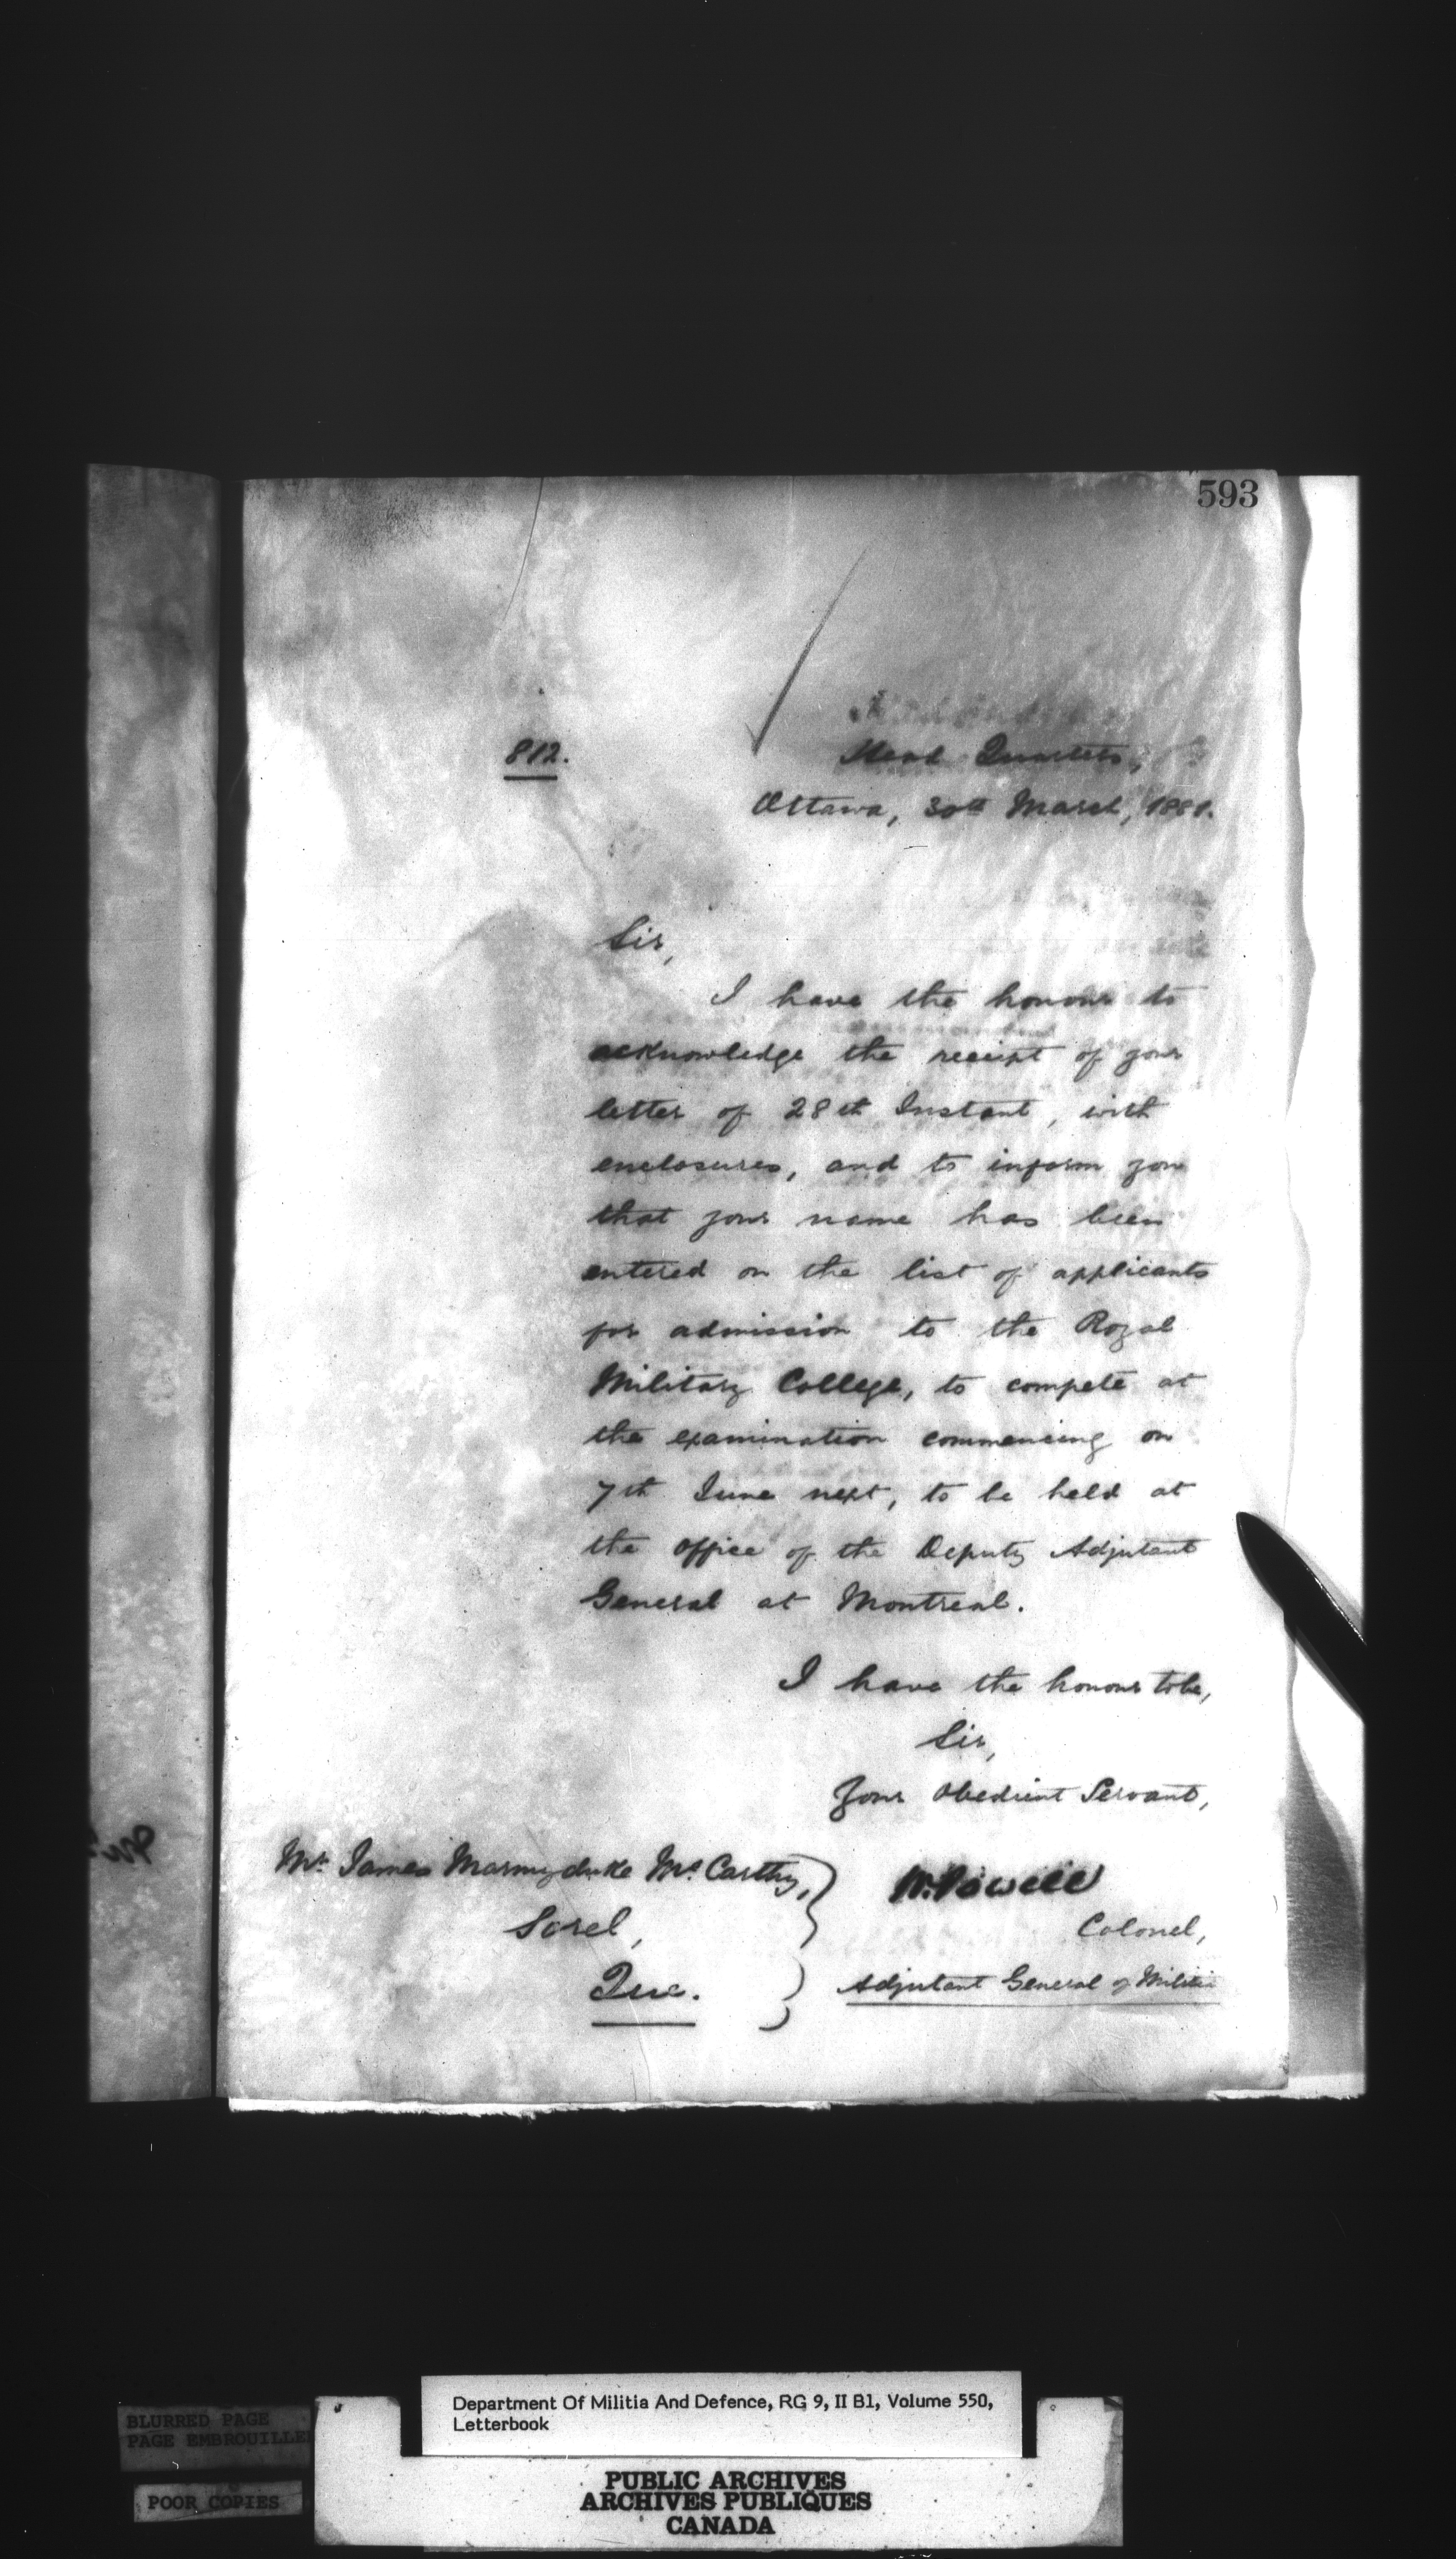 593
812.
Head Quarters,
Ottawa, 30th March, 1881.
Sir,
I have the honour to
acknowledge the receipt of your
letter of 28th Instant, with
enclosures, and to inform you
that your name has been
entered on the list of applicants
for admission to the Royal
Military College, to compete at
the examination commencing on
7th June next, to be held at
the office of the Deputy Adjutant
General at Montreal.
I have the honour to be,
Sir,
Your Obedient Servant,
Mr. James Marmyduke McCarthy,
Sorel,
Que.
W. Powell
Colonel,
Adjutant General of Militia
Department Of Militia And Defence, RG 9, II B1, Volume 550,
Letterbook
BLURRED PAGE
PAGE EMBROUILLEE
POOR COPIES
PUBLIC ARCHIVES
ARCHIVES PUBLIQUES
CANADA